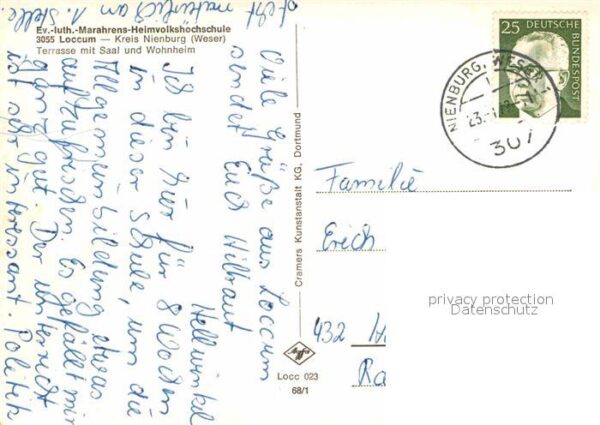 Ev.-luth.-Marahrens-Heimvolkshochschule
3055 Loccum — Kreis Nienburg (Weser)
Terrasse mit Saal und Wohnheim
Viele Grüße aus Loccum
sendet Euch Hiltraut
Hellwinkel
Ich bin hier für 8 Wochen
in dieser Schule, um die
Allgemeinbildung etwas
aufzufrischen. Es gefällt mir
ganz gut. Der Unterricht
ist sehr interessant. Politik
steht natürlich an 1. Stelle.
Cramers Kunstanstalt KG, Dortmund
Agfa
Locc 023
68/1
25
DEUTSCHE
BUNDESPOST
NIENBURG, WESER 1
23.
307
Familie
Erich
432
privacy protection
Datenschutz